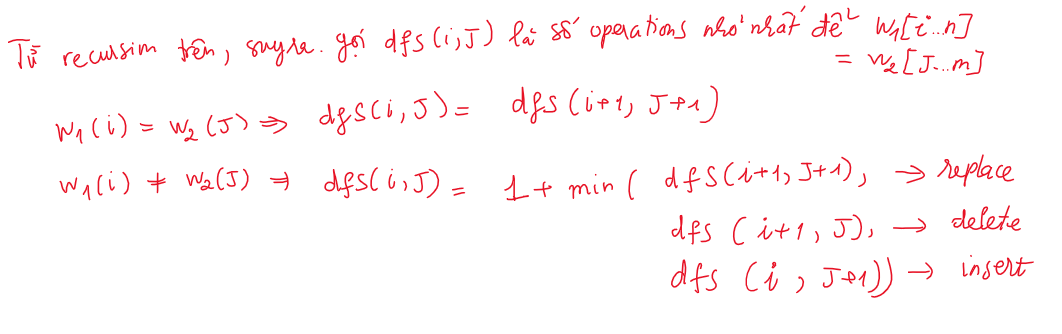 Từ recursim trên, suy ra. gọi dfs(i,J) là số operations nhỏ nhất để W1[i...n]
= W2[J...m]
W1(i) = W2(J) => dfs(i,J) = dfs(i+1, J+1)
W1(i) ≠ W2(J) => dfs(i,J) = 1 + min( dfs(i+1, J+1), → replace
dfs (i+1, J), → delete
dfs (i, J+1)) → insert